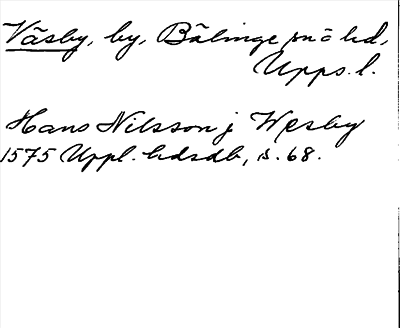 Väsby, by, Bälinge sn o hd,
Upps. l.
Hans Nilsson j Wesby
1575 Uppl. hdsdb, s. 68.